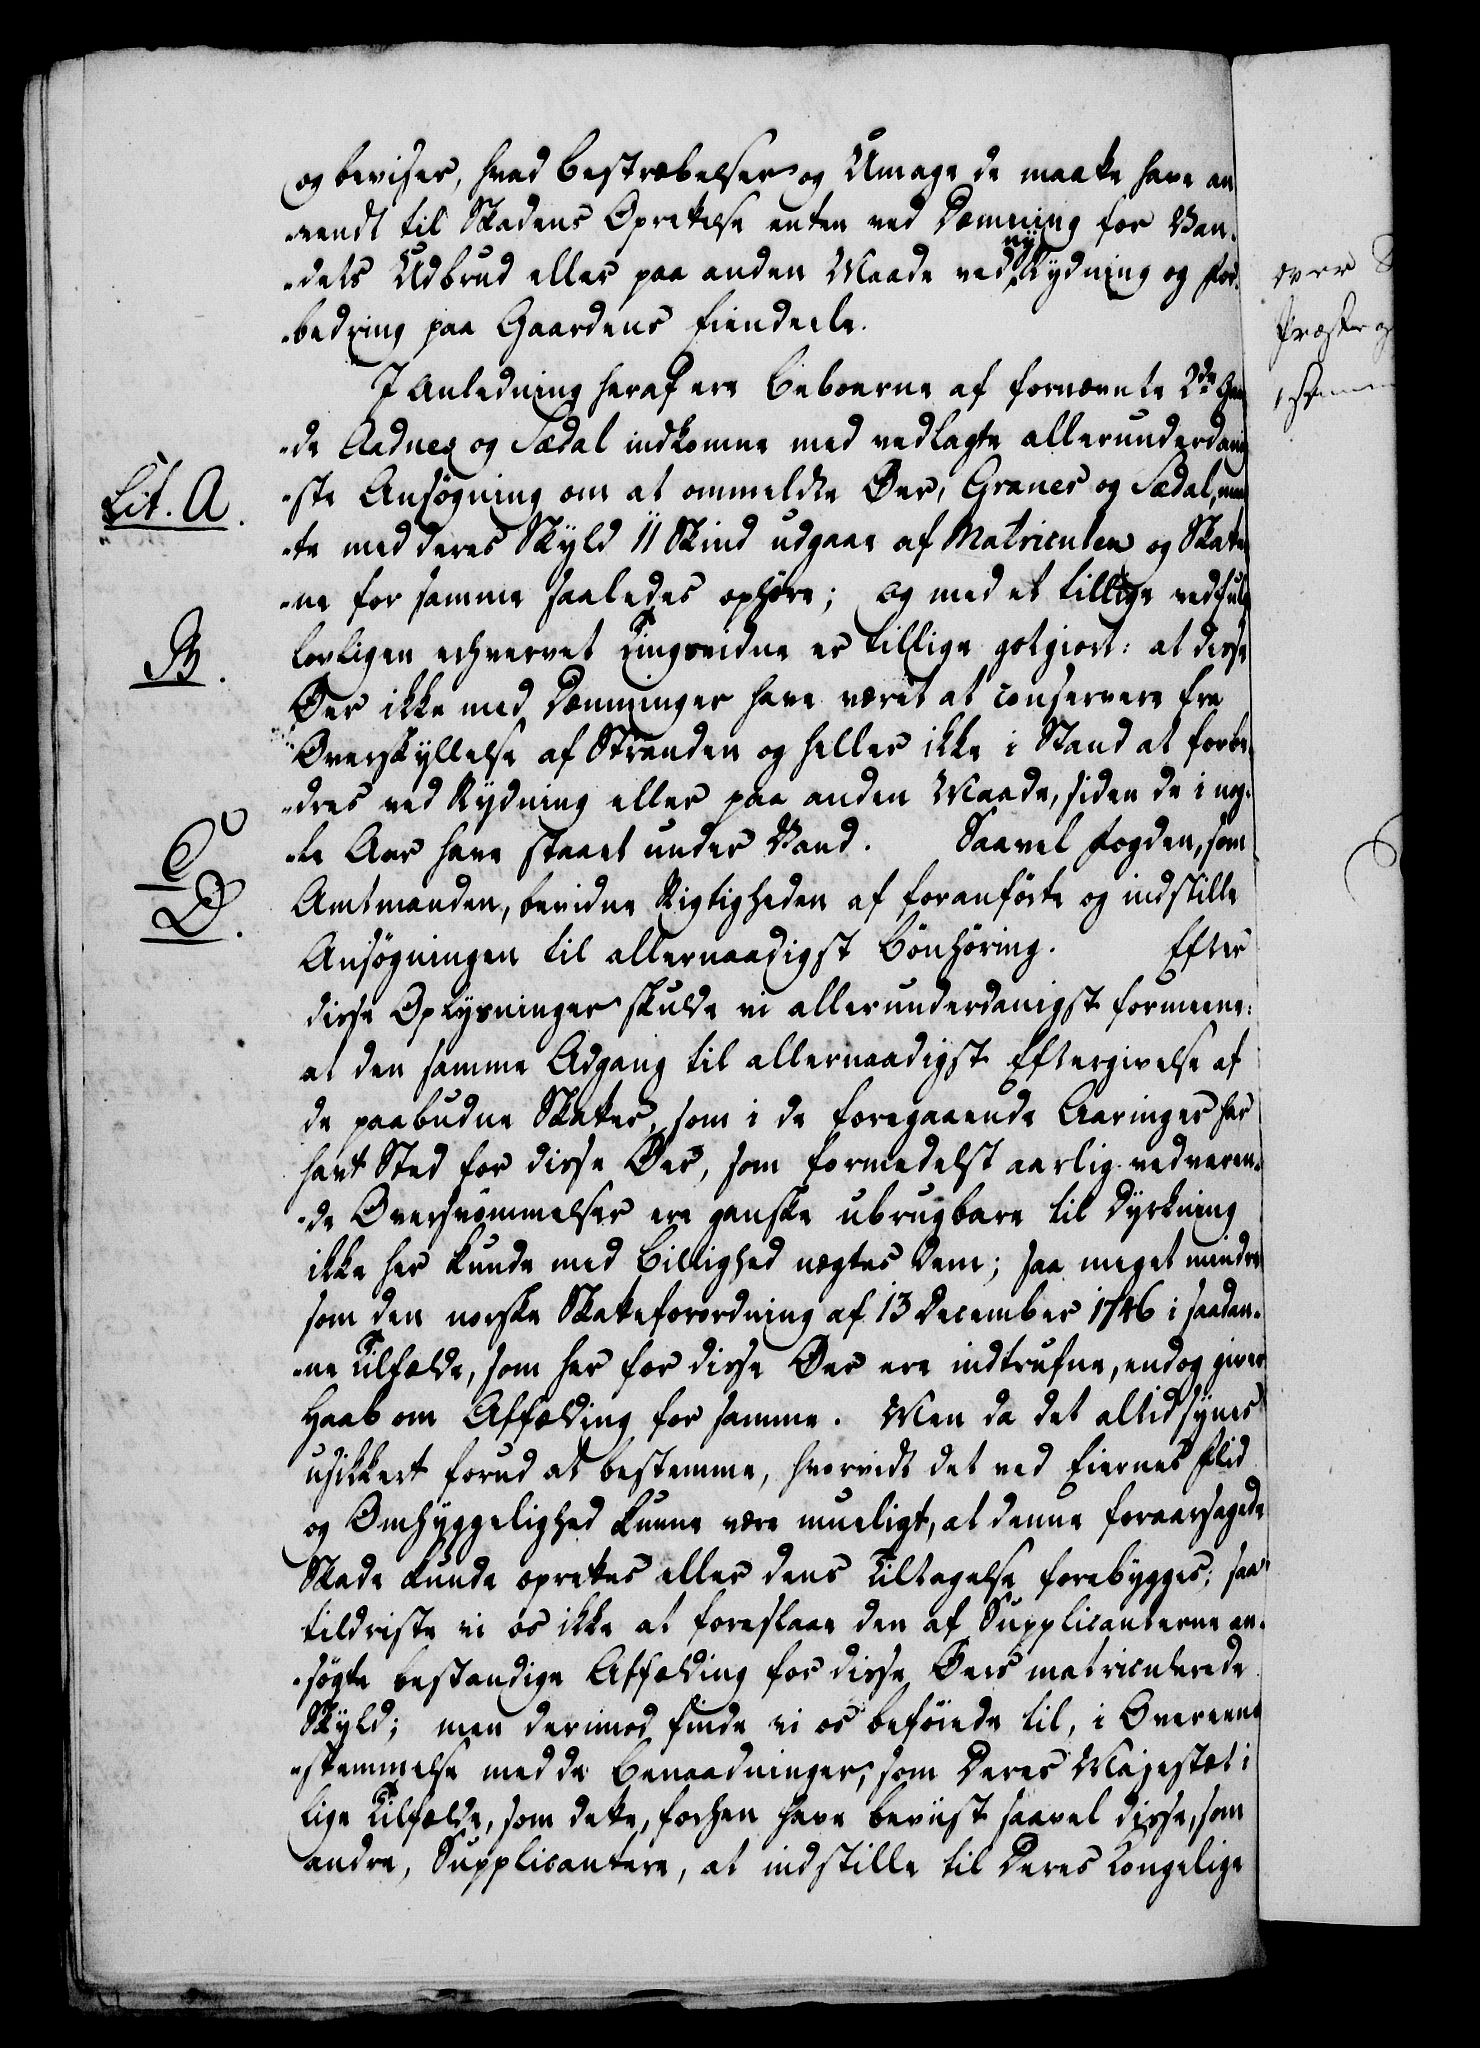 og beviser, hvad Bestræbelser og Umage de maatte have an
-vendt til Skadens Oprettelse enten ved Dæmning for Van-
-dets Udbrud eller paa anden Maade ved nÿ Rÿdning og For-
-bedring paa Gaardens Eiendeele.
I Anledning heraf ere Beboerne af fornævnte 2de Gaar
-de Aadnes og Sædal indkomne med vedlagte allerunderdanig
Lit. A.
-ste Ansøgning om at ommeldte Øer, Granes og Sædal, maat
-te med deres Skÿld 11 Skind udgaae af Matriculen og Skatter
-ne for samme saaledes ophøre; og med et tillige vedfulgt
B.
lovligen erhvervet Tingsvidne er tillige gotgiort: at disse
Øer ikke med Dæmninger have været at conservere fra
Overskÿllelse af Stranden og heller ikke i Stand at forbe-
-dres ved Rÿdning eller paa anden Maade, siden de i nog-
-le Aar have staaet under Vand. Saavel Fogden, som
C
D.
Amtmanden, bevidne Rigtigheden af foranførte og indstille
Ansøgningen til allernaadigst Bönhöring. Efter
disse Oplÿsninger skulde vi allerunderdanigst formeene:
at den samme Adgang til allernaadigst Eftergivelse af
de paabudne Skatter, som i de foregaaende Aaringer har
havt Sted for disse Øer, som formedelst aarlig vedvaren-
-de Oversvømmelser ere ganske ubrugbare til Dÿrkning
ikke her kunde med Billighed nægtes Dem; saa meget mindre
som den norske Skatteforordning af 13 December 1746 i saadan-
-ne Tilfælde, som her for disse Øer ere indtrufne, endog giver
Haab om Affælding for samme. Men da det altid sÿnes
usikkert forud at bestemme, hvorvidt det ved Eiernes Flid
og Omhÿggelighed kunne være mueligt, at denne foraarsagede
Skade kunde oprettes eller dens Tiltagelse forebÿgges; saa
tildriste vi os ikke at foreslaae den af Supplicanterne an-
-søgte bestandige Affælding for disse Øers matriculerede
Skÿld; men derimod finde vi os beføiede til, i Overeens
-stemmelse med de Benaadninger, som Deres Majestæt i
lige Tilfælde, som dette, forhen have beviist saavel disse, som
andre, Supplicantere, at indstille til Deres Kongelige
over